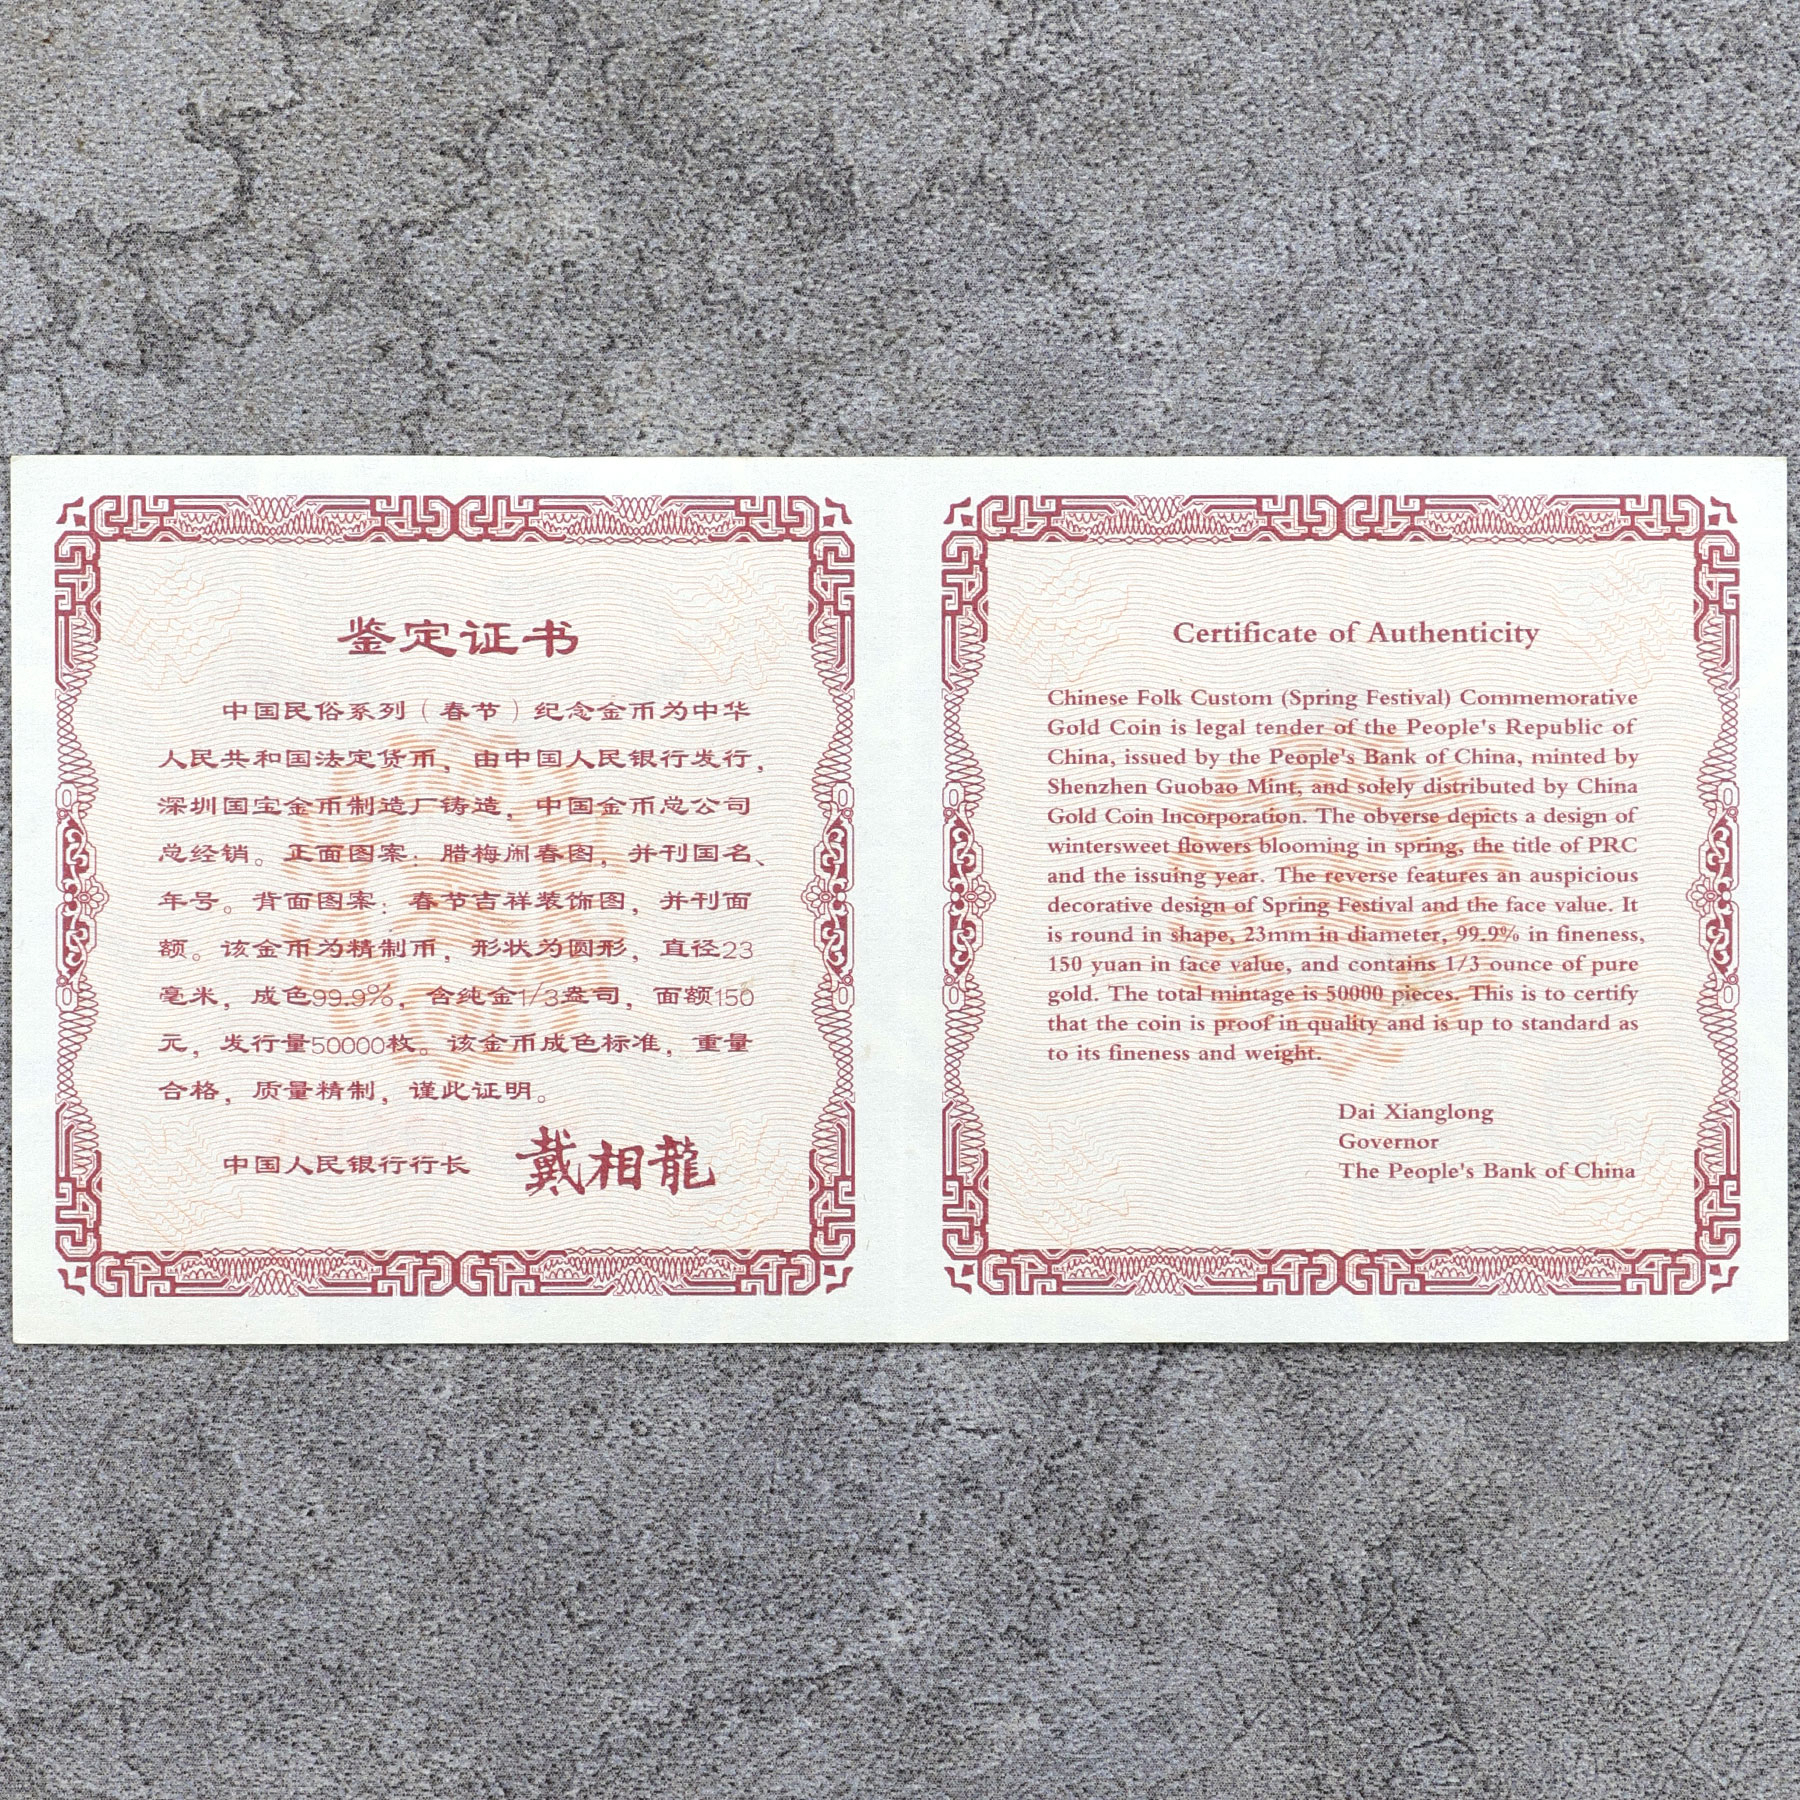 鉴定证书
中国民俗系列（春节）纪念金币为中华
人民共和国法定货币，由中国人民银行发行，
深圳国宝金币制造厂铸造，中国金币总公司
总经销。正面图案：腊梅闹春图，并刊国名、
年号。背面图案：春节吉祥装饰图，并刊面
额。该金币为精制币，形状为圆形，直径23
毫米，成色99.9%，含纯金1/3盎司，面额150
元，发行量50000枚。该金币成色标准，重量
合格，质量精制，谨此证明。
中国人民银行行长 戴相龍
Certificate of Authenticity
Chinese Folk Custom (Spring Festival) Commemorative
Gold Coin is legal tender of the People's Republic of
China, issued by the People's Bank of China, minted by
Shenzhen Guobao Mint, and solely distributed by China
Gold Coin Incorporation. The obverse depicts a design of
wintersweet flowers blooming in spring, the title of PRC
and the issuing year. The reverse features an auspicious
decorative design of Spring Festival and the face value. It
is round in shape, 23mm in diameter, 99.9% in fineness,
150 yuan in face value, and contains 1/3 ounce of pure
gold. The total mintage is 50000 pieces. This is to certify
that the coin is proof in quality and is up to standard as
to its fineness and weight.
Dai Xianglong
Governor
The People's Bank of China